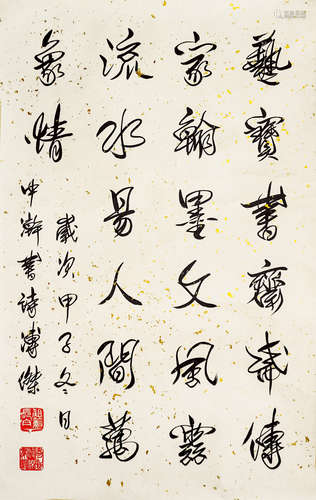 藝寶書齋傳
家翰墨文風
流水易人間萬
象情
歲次甲子冬日
中瀚書詩溥傑